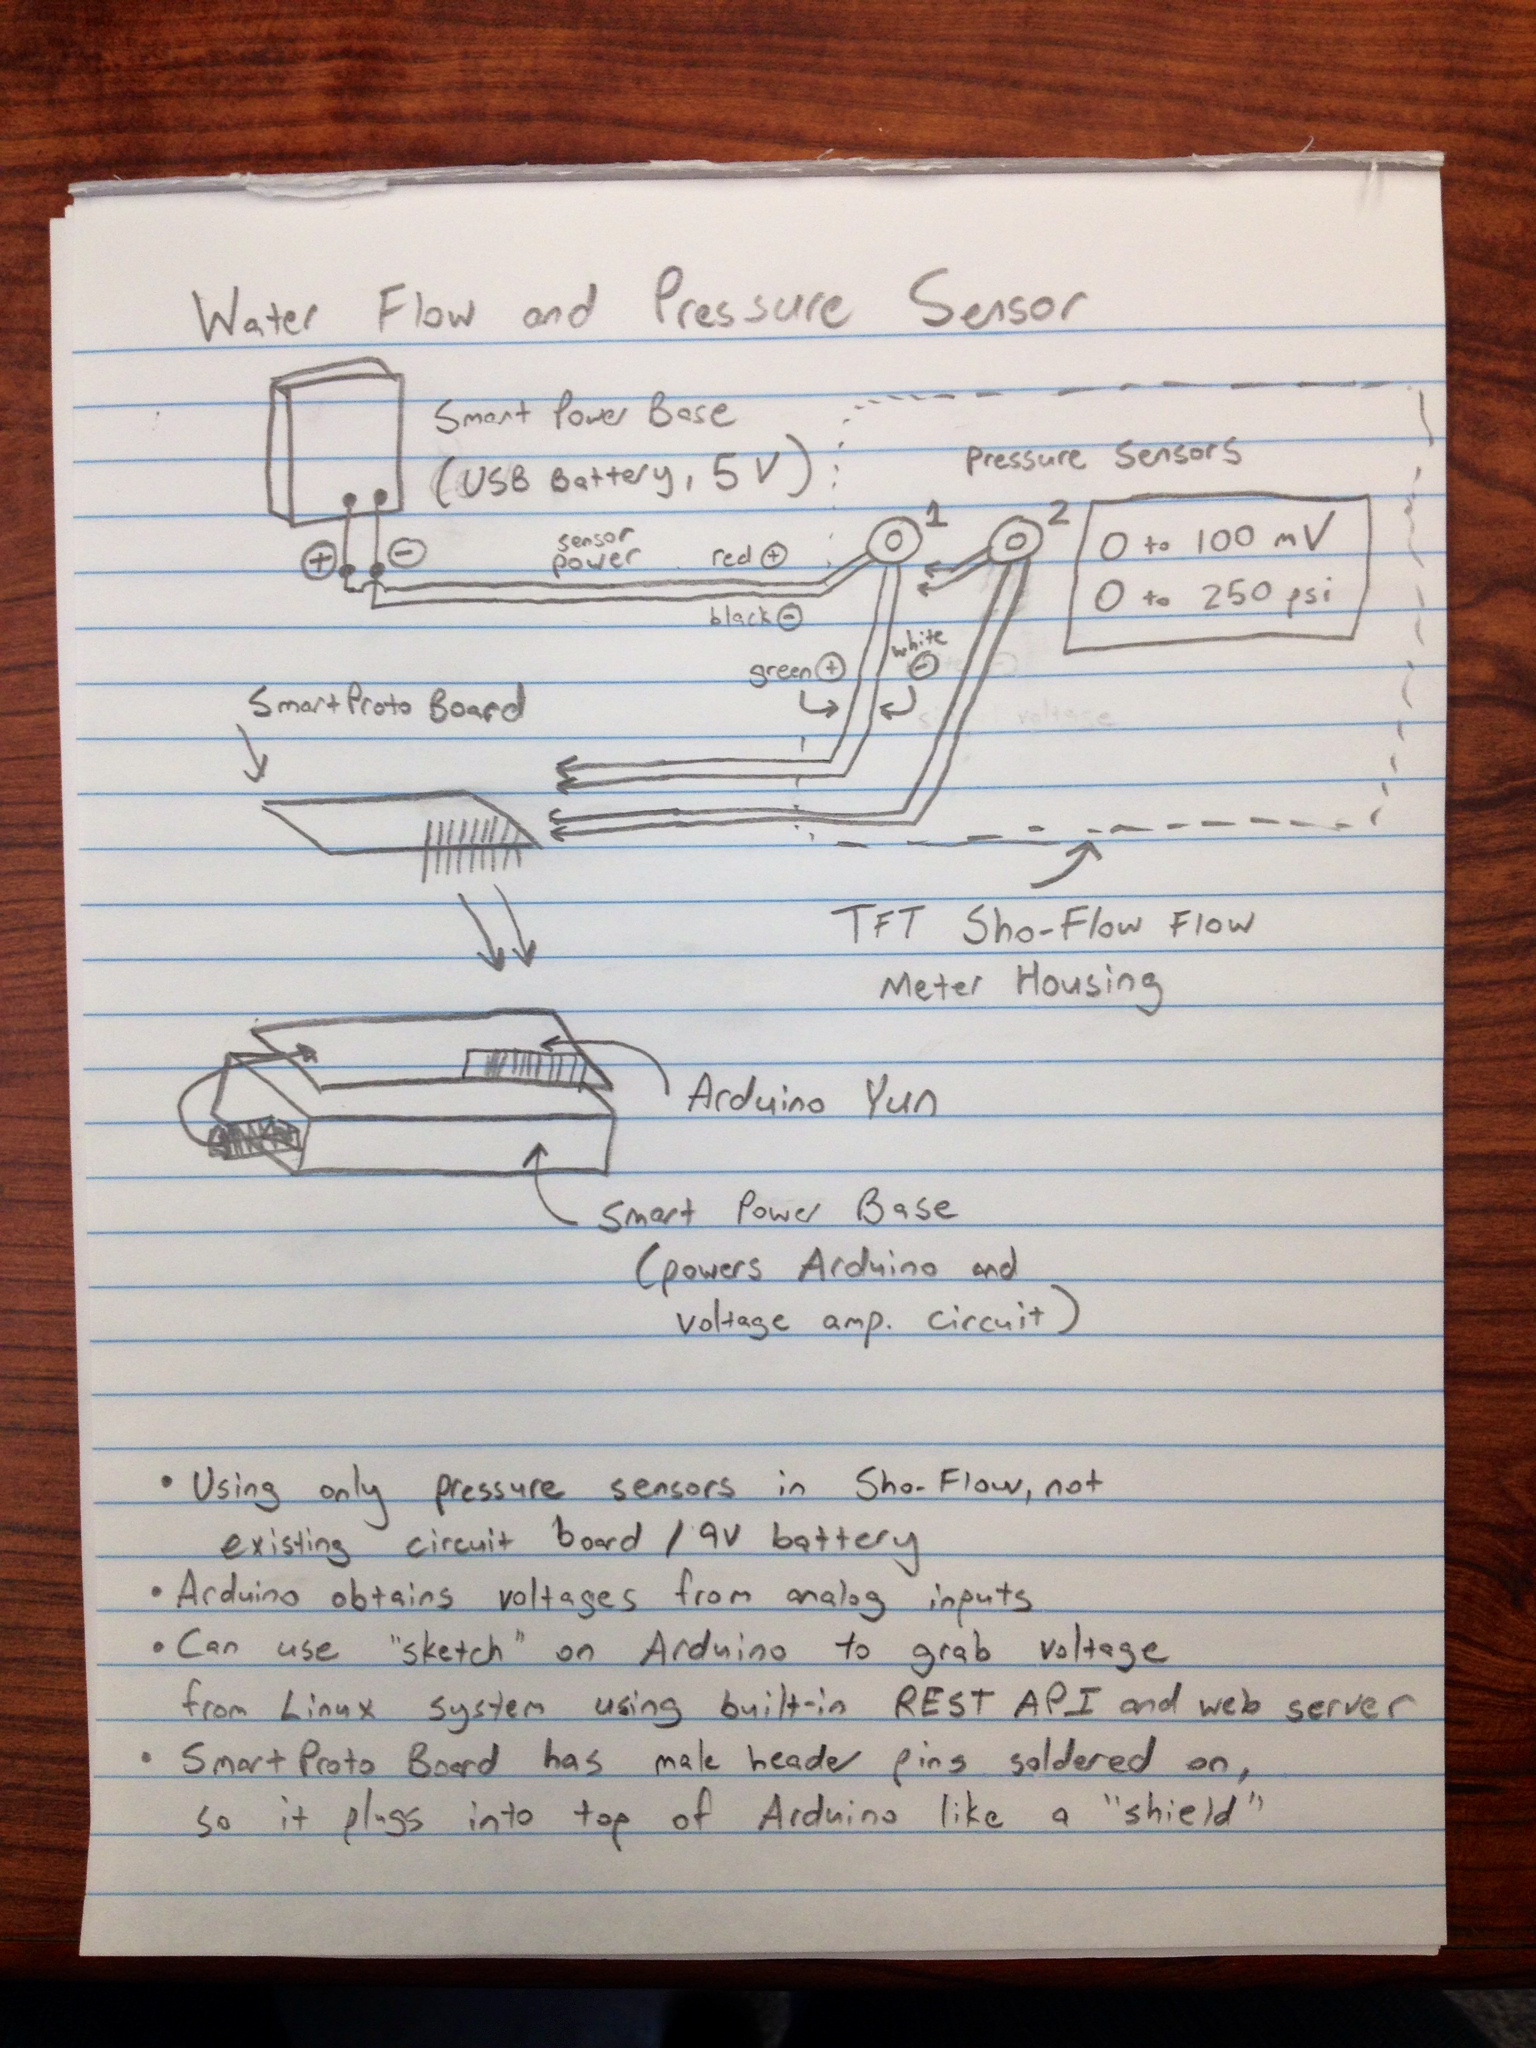 Water Flow and Pressure Sensor
Smart Power Base
(USB Battery, 5 V)
Pressure Sensors
1
2
0 to 100 mV
0 to 250 psi
+
-
sensor
power
red +
black -
green +
white
-
voltage
SmartProto Board
TFT Sho-Flow Flow
Meter Housing
Arduino Yun
Smart Power Base
(powers Arduino and
voltage amp. circuit)
• Using only pressure sensors in Sho-Flow, not
existing circuit board / 9V battery
• Arduino obtains voltages from analog inputs
• Can use "sketch" on Arduino to grab voltage
from Linux system using built-in REST API and web server
• SmartProto Board has male header pins soldered on,
so it plugs into top of Arduino like a "shield"